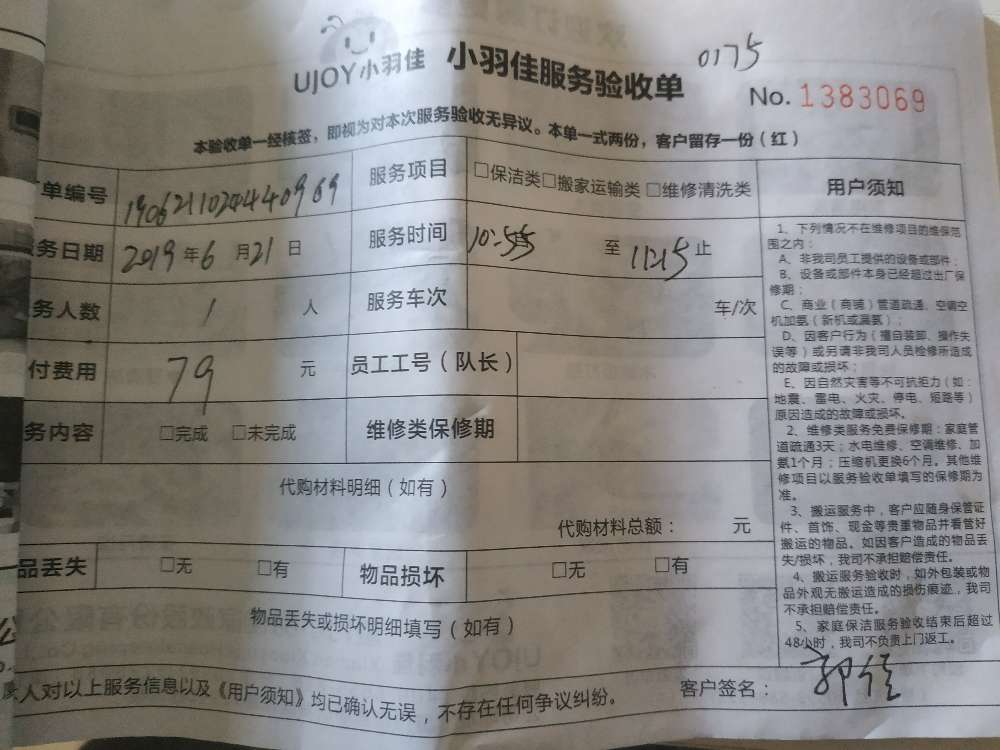 UJOY小羽佳 小羽佳服务验收单 0175
No. 1383069
本验收单一经核签，即视为对本次服务验收无异议。本单一式两份，客户留存一份（红）
单编号 服务项目 □保洁类□搬家运输类□维修清洗类 用户须知
务日期 2019年6月21日 服务时间 10:55 至 11:15 止
务人数 1 人 服务车次 车/次
付费用 79 元 员工工号（队长）
务内容 □完成 □未完成 维修类保修期
代购材料明细（如有）
代购材料总额： 元
品丢失 □无 □有 物品损坏 □无 □有
物品丢失或损坏明细填写（如有）
人对以上服务信息以及《用户须知》均已确认无误，不存在任何争议纠纷。
客户签名：
1、下列情况不在维修项目的维保范
围之内：
A、非我司员工提供的设备或部件；
B、设备或部件本身已经超过出厂保
修期；
C、商业（商铺）管道疏通、空调空
机加氨（新机或漏氨）；
D、因客户行为（擅自装卸、操作失
误等）或另请非我司人员检修所造成
的故障或损坏；
E、因自然灾害等不可抗拒力（如：
地震、雷电、火灾、停电、短路等）
原因造成的故障或损坏。
2、维修类服务免费保修期：家庭管
道疏通3天；水电维修、空调维修、加
氨1个月；压缩机更换6个月。其他维
修项目以服务验收单填写的保修期为
准。
3、搬运服务中，客户应随身保管证
件、首饰、现金等贵重物品并看管好
搬运的物品。如因客户造成的物品丢
失/损坏，我司不承担赔偿责任。
4、搬运服务验收时，如外包装或物
品外观无搬运造成的损伤痕迹，我司
不承担赔偿责任。
5、家庭保洁服务验收结束后超过
48小时，我司不负责上门返工。